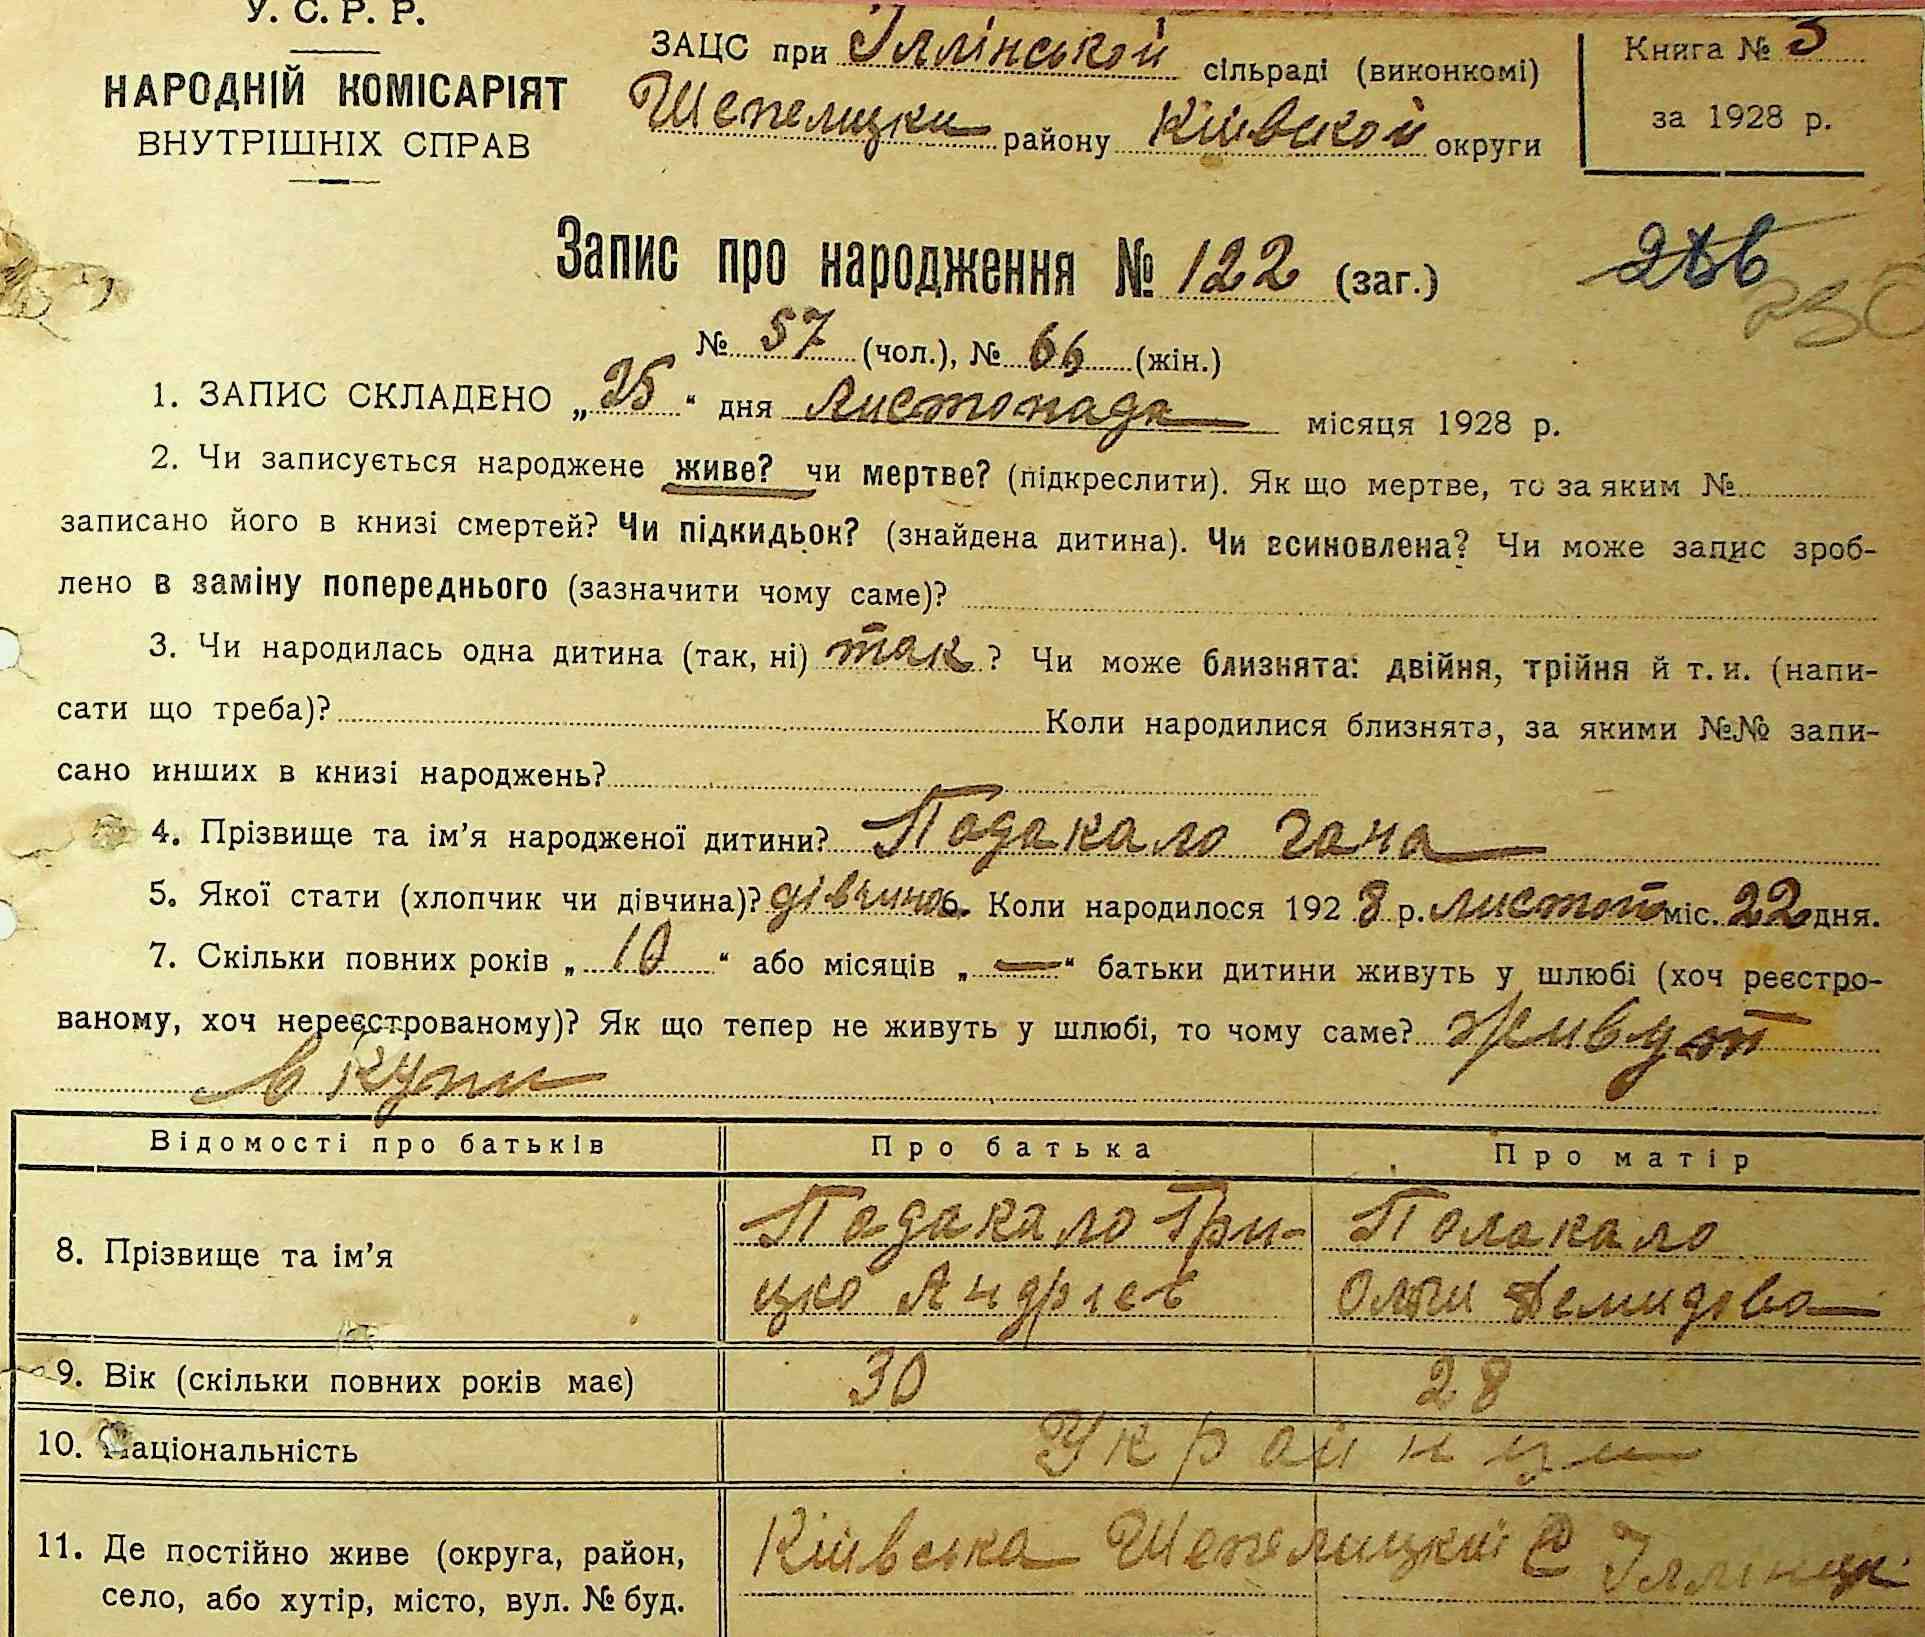 У. С. Р. Р.
НАРОДНІЙ КОМІСАРІЯТ
ВНУТРІШНІХ СПРАВ
ЗАЦС при Іллінськой сільраді (виконкомі)
Шепелицки району Київской округи
Книга № 3
за 1928 р.
Запис про народження № 122 (заг.)
№ 57 (чол.), № 66 (жін.)
1. ЗАПИС СКЛАДЕНО „25“ дня листопада місяця 1928 р.
2. Чи записується народжене живе? чи мертве? (підкреслити). Як що мертве, то за яким №
записано його в книзі смертей? Чи підкидьок? (знайдена дитина). Чи всиновлена? Чи може запис зроб-
лено в заміну попереднього (зазначити чому саме)?
3. Чи народилась одна дитина (так, ні) так? Чи може близнята: двійня, трійня й т. и. (напи-
сати що треба)? Коли народилися близнята, за якими №№ запи-
сано инших в книзі народжень?
4. Прізвище та ім'я народженої дитини? Подакало Гана
5. Якої стати (хлопчик чи дівчина)? дівчина 6. Коли народилося 1928 р. листоп міс. 22 дня.
7. Скільки повних років „10“ або місяців „—“ батьки дитини живуть у шлюбі (хоч реєстро-
ваному, хоч нереєстрованому)? Як що тепер не живуть у шлюбі, то чому саме? живут
в купи
Відомості про батьків Про батька Про матір
8. Прізвище та ім'я Подакало Гри- Подакало
цко Андріев Демидова
9. Вік (скільки повних років має) 30 28
10. Національність Украйнци
11. Де постійно живе (округа, район, Київська Шепелицкий С Іллінци
село, або хутір, місто, вул. № буд.